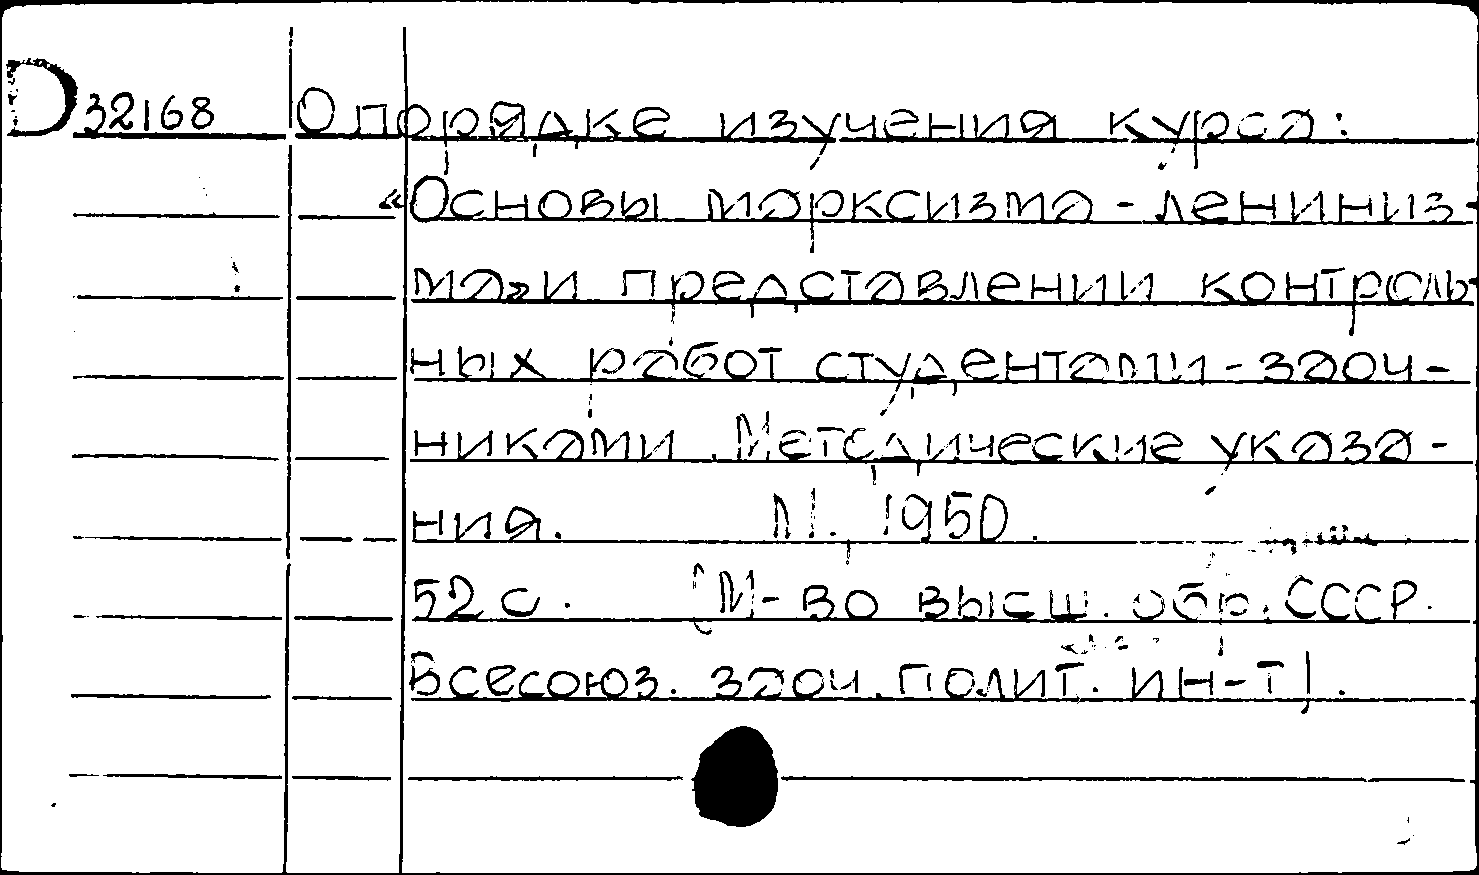 D 32168 О порядке изучения курса:
«Основы марксизма - лениниз-
ма» и представлении контроль-
ных работ студентами - заоч-
никами. Методические указа-
ния. М., 1950.
52 с. (М-во высш. обр. СССР.
Всесоюз. заоч. полит. ин-т).